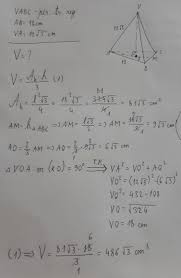 VABC - pir. tr. reg
AB = 18cm
VA = 12√3 cm
V = ?
V = A_b · h / 3 (1)
A_b = l²√3 / 4 = 18²√3 / 4 = 324√3 / 4 = 81√3 cm²
AM = h_ΔABC ⇒ AM = l√3 / 2 ⇒ AM = 18√3 / 2 = 9√3 cm
AO = 2/3 AM ⇒ AO = 2/3 · 9√3 = 6√3 cm
VA² = VO² + AO²
VO² = (12√3)² - (6√3)²
VO² = 432 - 108
VO = √324
VO = 18cm
(1) ⇒ V = 81√3 · 18 / 3 = 486√3 cm³